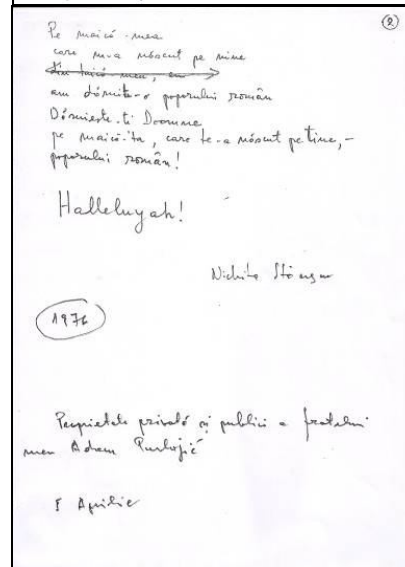 2
Pe maică-mea
care m-a născut pe mine
din taică-meu, eu
am dăruit-o poporului român
Dăruiește-ți Doamne
pe maică-ta, care te-a născut pe tine, -
poporului român!
Halleluyah!
Nichita Stănescu
1976
Proprietate privată și publică a fratelui
meu Adam Puslojić
5 Aprilie